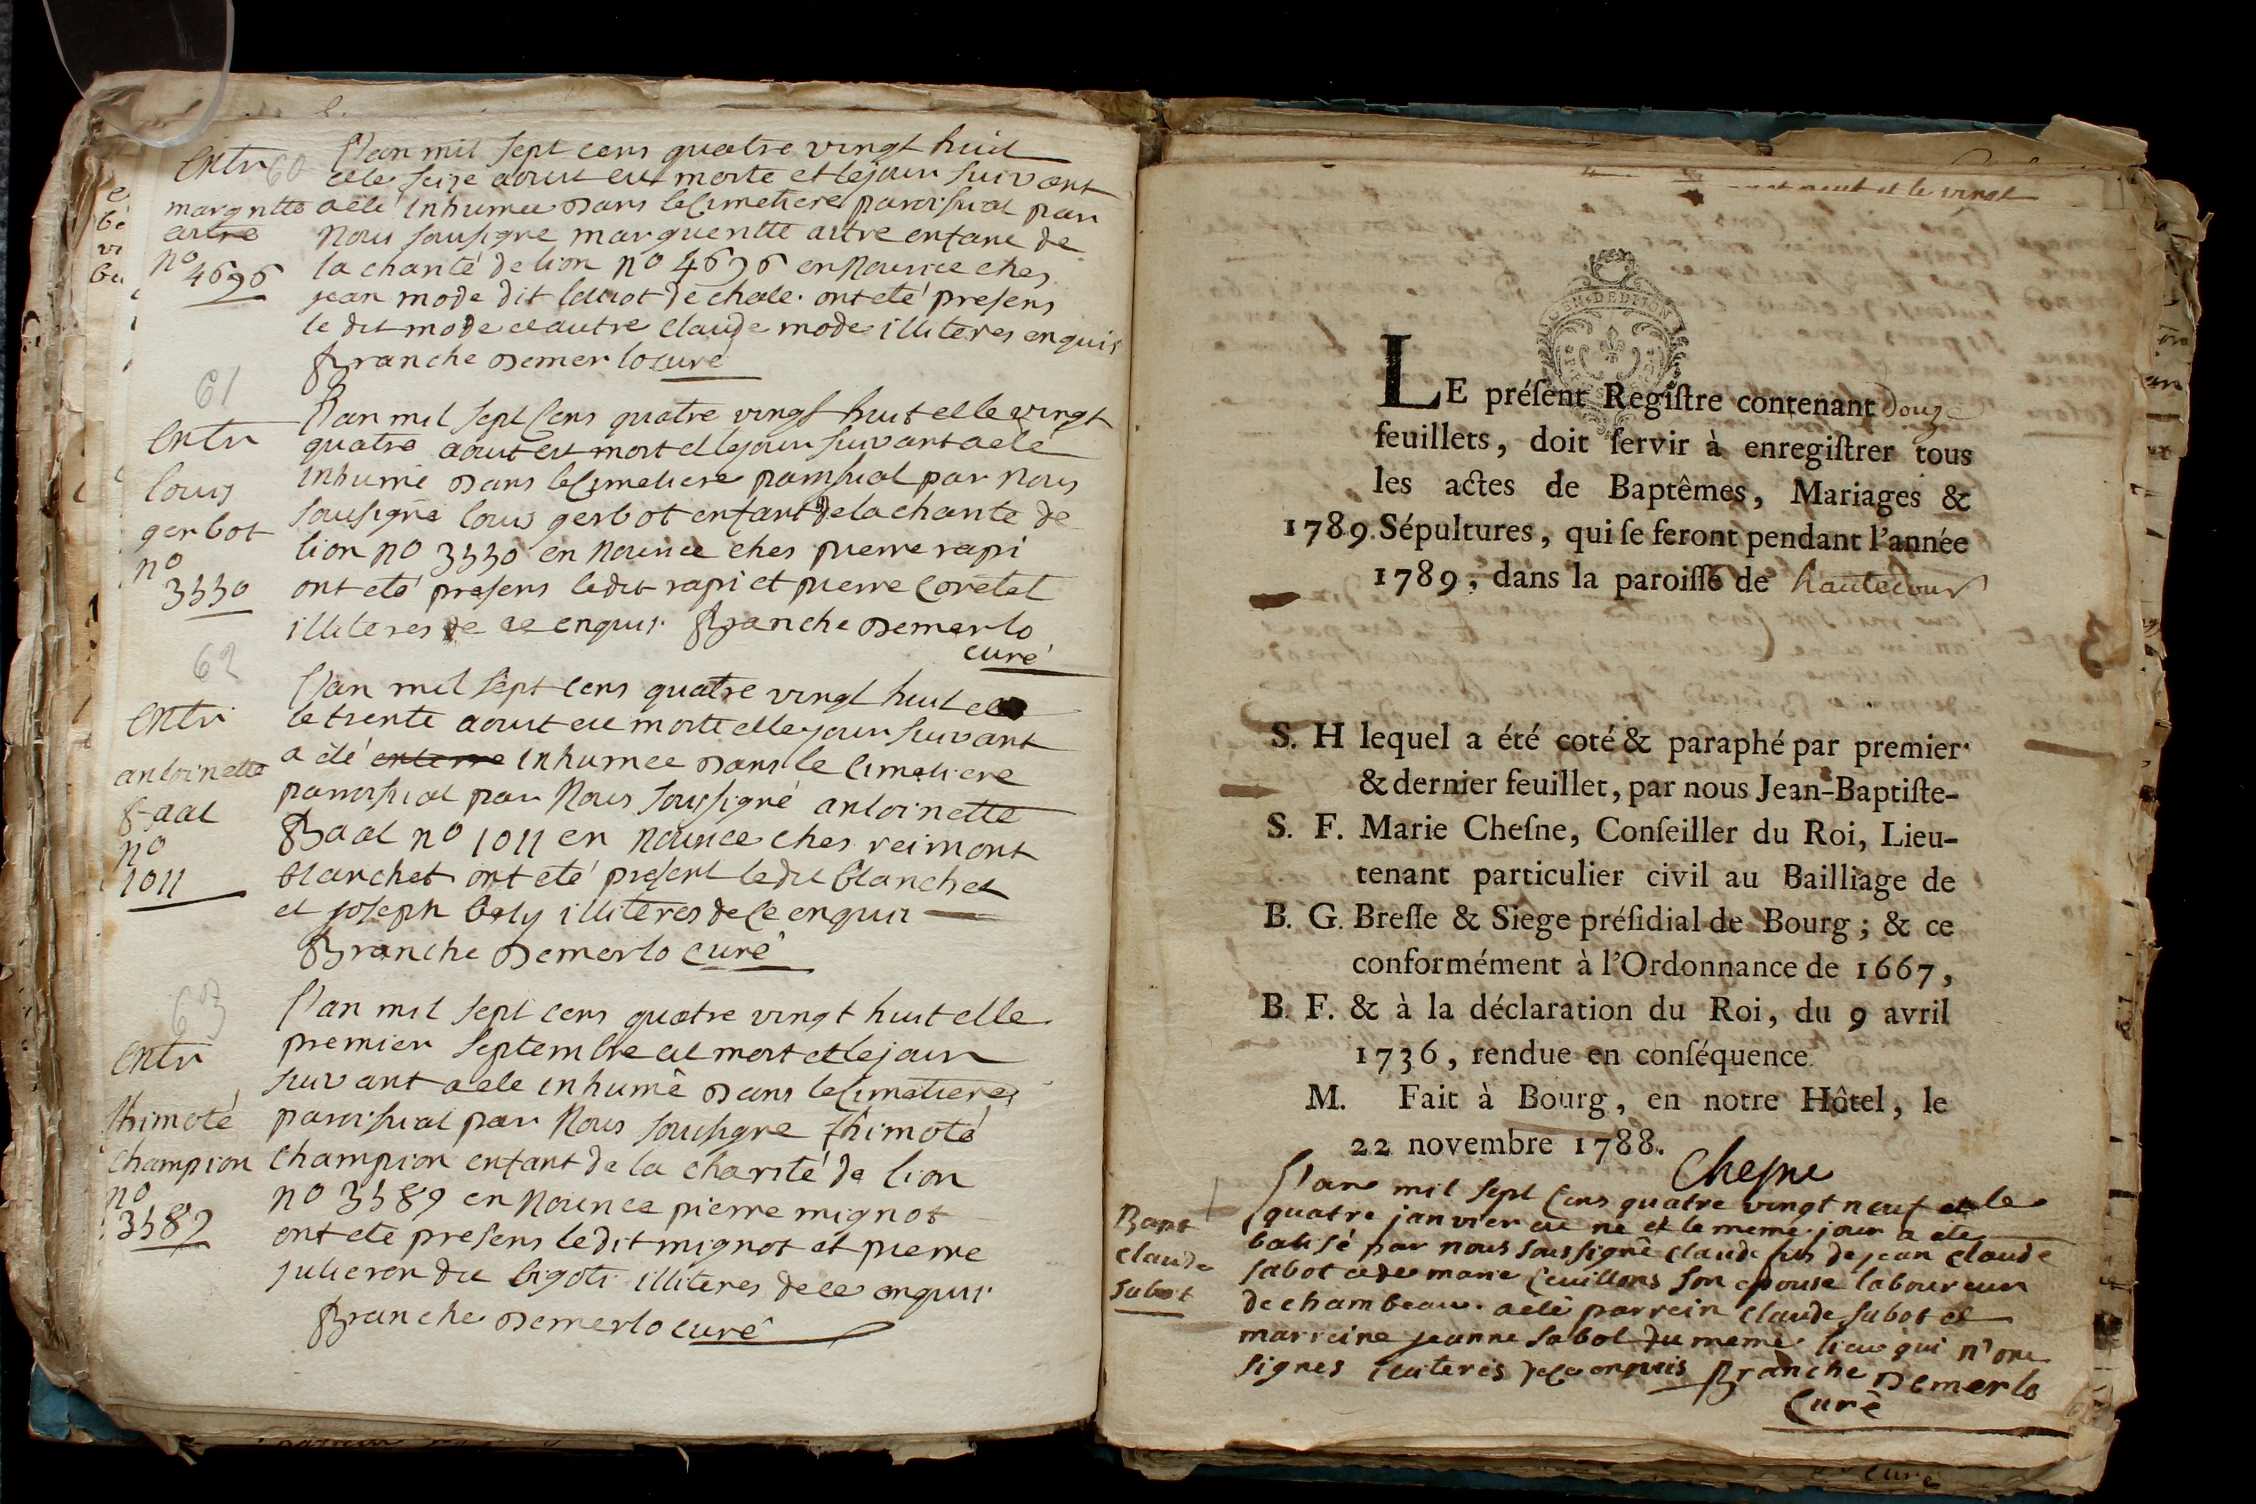 entr 60
margritte
artre
no
4696
l'an mil sept cens quatre vingt huit
et le seize aoust est morte et le jour suivant
a eté inhumee dans le cimetiere paroissial par
nous sousigne margueritte artre enfant de
la charité de lion no 4696 en nourice ches
jean mode dit de chale. ont eté presens
le dit mode et autre claude mode illiteres enquis
Branche Demerlo curé
61
entr
louis
gerbot
no
3330
l'an mil sept cens quatre vingt huit et le vingt
quatre aoust est mort et le jour suivant a eté
inhumé dans le cimetiere paroissial par nous
sousigné louis gerbot enfant de la charité de
lion no 3330 en nourice ches pierre rapi
ont eté presens le dit rapi et pierre coretet
illiteres de ce enquis Branche Demerlo
curé
62
entr
antoinette
Baal
no
1011
l'an mil sept cens quatre vingt huit et
le trente aoust est morte et le jour suivant
a été enterre inhumee dans le cimetiere
paroissial par nous soussigné antoinette
Baal no 1011 en nourice ches reimont
blanchet ont eté present le dit blanchet
et joseph bely illiteres de ce enquis
Branche Demerlo curé
63
entr
thimoté
champion
no
3589
l'an mil sept cens quatre vingt huit et le
premier septembre est mort et le jour
suivant a ete inhumé dans le cimetiere
paroissial par nous sousigne thimoté
champion enfant de la charité de lion
no 3589 en nourice pierre mignot
ont ete presens le dit mignot et pierre
julieron dit bigoti illiteres de ce enquis
Branche Demerlo curé
neuf et le vingt
LE préſent Regiſtre contenant douze
feuillets, doit ſervir à enregiſtrer tous
les actes de Baptêmes, Mariages &
1789. Sépultures, qui ſe feront pendant l'année
1789, dans la paroiſſe de hautecour
S. H lequel a été coté & paraphé par premier
& dernier feuillet, par nous Jean-Baptiſte-
S. F. Marie Cheſne, Conſeiller du Roi, Lieu-
tenant particulier civil au Bailliage de
B. G. Breſſe & Siege préſidial de Bourg ; & ce
conformément à l'Ordonnance de 1667,
B. F. & à la déclaration du Roi, du 9 avril
1736, rendue en conſéquence.
M. Fait à Bourg, en notre Hôtel, le
22 novembre 1788.
Chesne
Bapt
claude
sabot
l'an mil sept cens quatre vingt neuf et le
quatre janvier est né et le meme jour a ete
batisé par nous soussigné claude fils de jean claude
sabot et de marie cevillons son epouse laboureur
de chambeau. a eté parrein claude sabot et
marreine jeanne sabot du meme lieu qui n'ont
signes illiteres de ce enquis Branche Demerlo
curé
curé